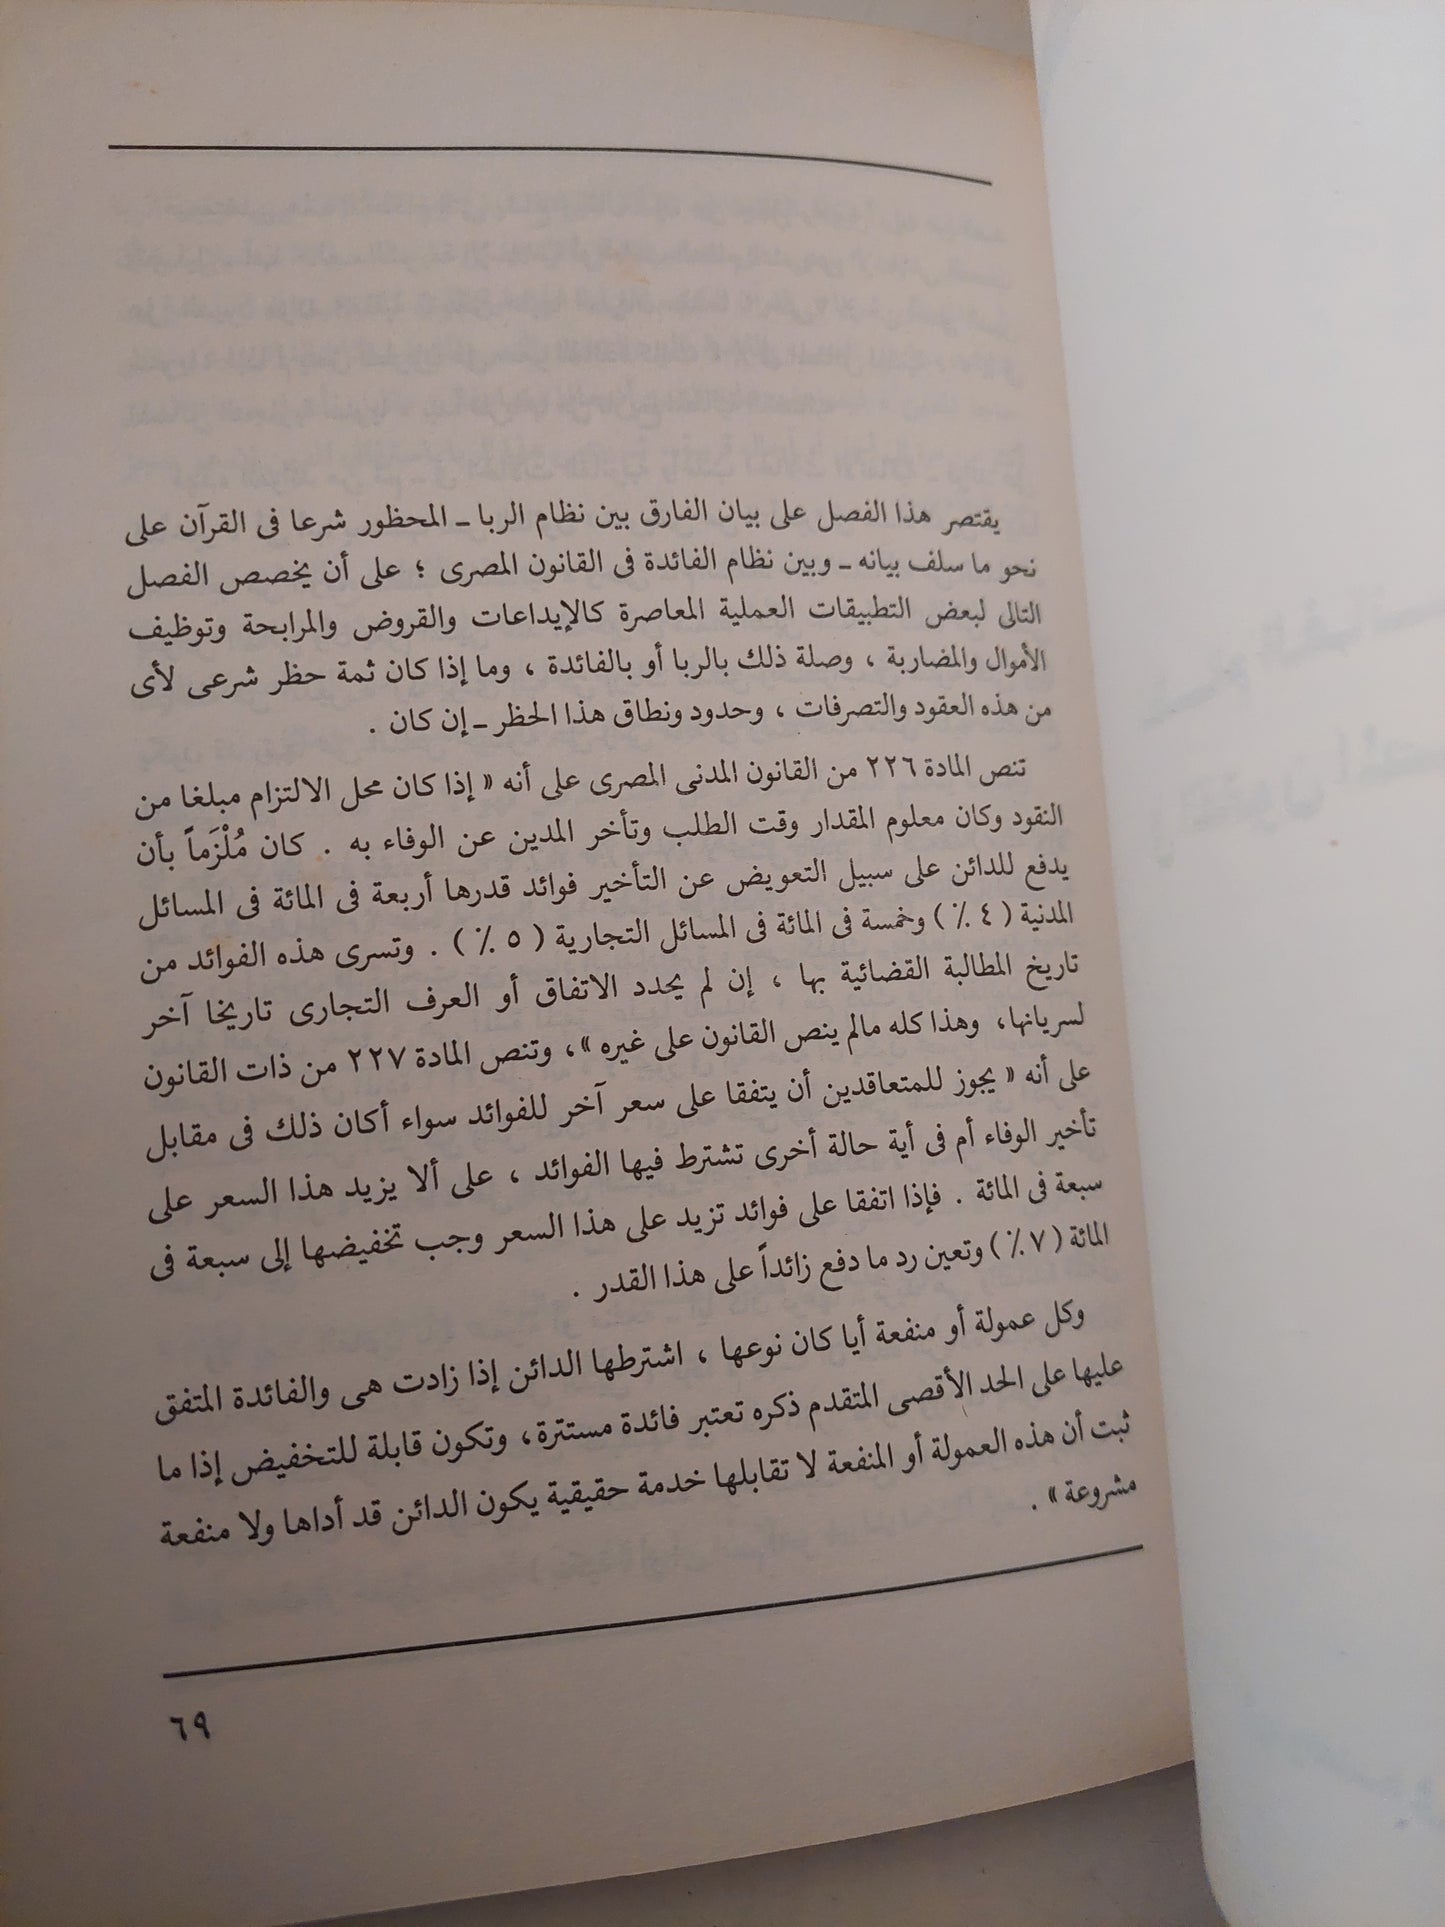 يقتصر هذا الفصل على بيان الفارق بين نظام الربا ـ المحظور شرعا فى القرآن على
نحو ما سلف بيانه ـ وبين نظام الفائدة فى القانون المصرى ؛ على أن يخصص الفصل
التالى لبعض التطبيقات العملية المعاصرة كالإيداعات والقروض والمرابحة وتوظيف
الأموال والمضاربة ، وصلة ذلك بالربا أو بالفائدة ، وما إذا كان ثمة حظر شرعى لأى
من هذه العقود والتصرفات ، وحدود ونطاق هذا الحظر ـ إن كان .
تنص المادة ٢٢٦ من القانون المدنى المصرى على أنه « إذا كان محل الالتزام مبلغا من
النقود وكان معلوم المقدار وقت الطلب وتأخر المدين عن الوفاء به . كان مُلْزَماً بأن
يدفع للدائن على سبيل التعويض عن التأخير فوائد قدرها أربعة فى المائة فى المسائل
المدنية ( ٤ ٪ ) وخمسة فى المائة فى المسائل التجارية ( ٥ ٪ ) . وتسرى هذه الفوائد من
تاريخ المطالبة القضائية بها ، إن لم يحدد الاتفاق أو العرف التجارى تاريخا آخر
لسريانها، وهذا كله مالم ينص القانون على غيره »، وتنص المادة ٢٢٧ من ذات القانون
على أنه « يجوز للمتعاقدين أن يتفقا على سعر آخر للفوائد سواء أكان ذلك فى مقابل
تأخير الوفاء أم فى أية حالة أخرى تشترط فيها الفوائد ، على ألا يزيد هذا السعر على
سبعة فى المائة . فإذا اتفقا على فوائد تزيد على هذا السعر وجب تخفيضها إلى سبعة فى
المائة ( ٧ ٪ ) وتعين رد ما دفع زائداً على هذا القدر .
وكل عمولة أو منفعة أيا كان نوعها ، اشترطها الدائن إذا زادت هى والفائدة المتفق
عليها على الحد الأقصى المتقدم ذكره تعتبر فائدة مستترة، وتكون قابلة للتخفيض إذا ما
ثبت أن هذه العمولة أو المنفعة لا تقابلها خدمة حقيقية يكون الدائن قد أداها ولا منفعة
مشروعة » .
٦٩